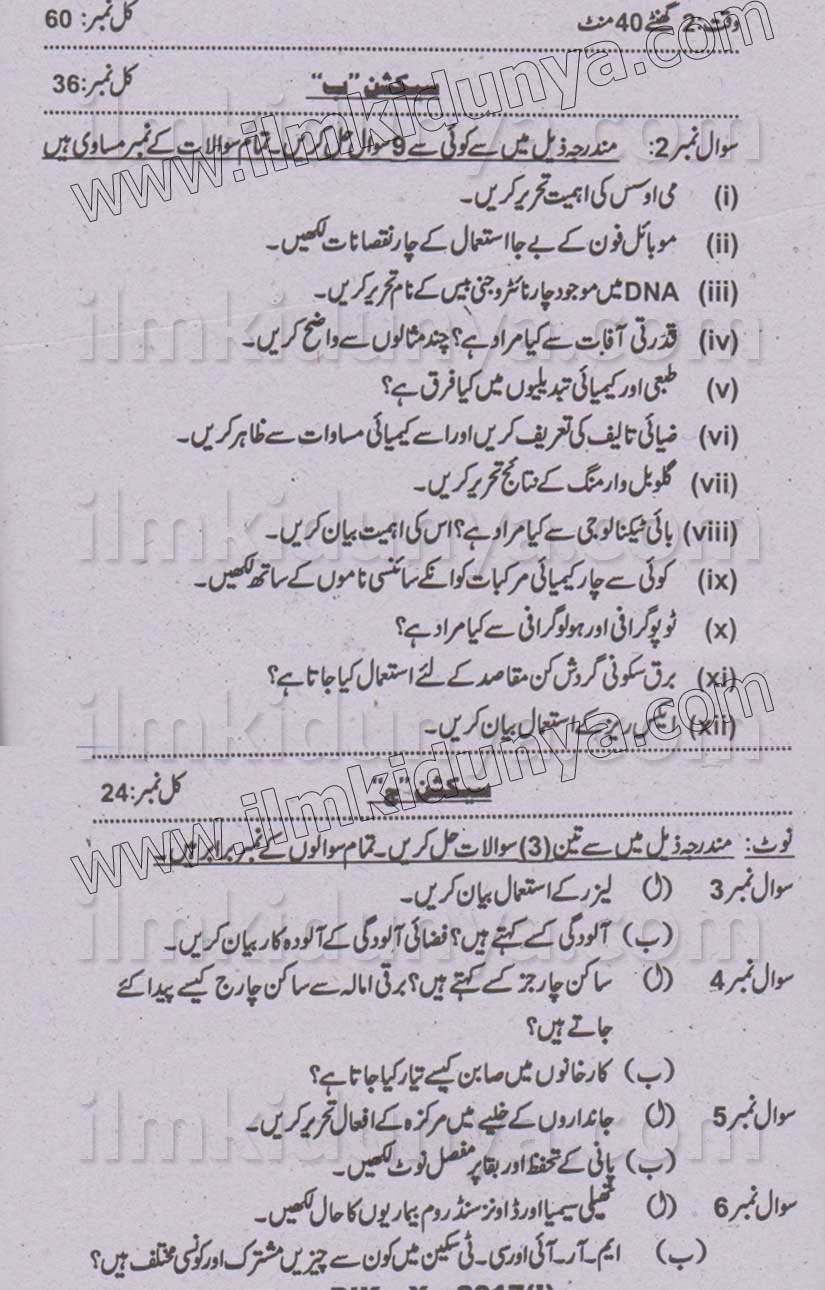 وقت: 2 گھنٹے 40 منٹ کل نمبر: 60
سیکشن "ب" کل نمبر: 36
سوال نمبر 2: مندرجہ ذیل میں سے کوئی سے 9 سوال حل کریں۔ تمام سوالات کے نمبر مساوی ہیں
(i) می اوسس کی اہمیت تحریر کریں۔
(ii) موبائل فون کے بے جا استعمال کے چار نقصانات لکھیں۔
(iii) DNA میں موجود چار نائٹروجنی بیس کے نام تحریر کریں۔
(iv) قدرتی آفات سے کیا مراد ہے؟ چند مثالوں سے واضح کریں۔
(v) طبعی اور کیمیائی تبدیلیوں میں کیا فرق ہے؟
(vi) ضیائی تالیف کی تعریف کریں اور اسے کیمیائی مساوات سے ظاہر کریں۔
(vii) گلوبل وارمنگ کے نتائج تحریر کریں۔
(viii) بائی ٹیکنالوجی سے کیا مراد ہے؟ اس کی اہمیت بیان کریں۔
(ix) کوئی سے چار کیمیائی مرکبات کو انکے سائنسی ناموں کے ساتھ لکھیں۔
(x) ٹوپوگرافی اور ہولوگرافی سے کیا مراد ہے؟
(xi) برق سکونی گردش کن مقاصد کے لئے استعمال کیا جاتا ہے؟
(xii) ایکس ریز کے استعمال بیان کریں۔
سیکشن "ج" کل نمبر: 24
نوٹ: مندرجہ ذیل میں سے تین (3) سوالات حل کریں۔ تمام سوالوں کے نمبر برابر ہیں۔
سوال نمبر 3 (ل) لیزر کے استعمال بیان کریں۔
(ب) آلودگی کسے کہتے ہیں؟ فضائی آلودگی کے آلودہ کار بیان کریں۔
سوال نمبر 4 (ل) ساکن چارجز کسے کہتے ہیں؟ برقی امالہ سے ساکن چارج کیسے پیدا کئے
جاتے ہیں؟
(ب) کارخانوں میں صابن کیسے تیار کیا جاتا ہے؟
سوال نمبر 5 (ل) جانداروں کے خلیے میں مرکزہ کے افعال تحریر کریں۔
(ب) پانی کے تحفظ اور بقا پر مفصل نوٹ لکھیں۔
سوال نمبر 6 (ل) تھیلی سیمیا اور ڈاونز سنڈروم بیماریوں کا حال لکھیں۔
(ب) ایم۔آر۔آئی اور سی۔ٹی سکین میں کون سے چیزیں مشترک اور کونسی مختلف ہیں؟
www.ilmkidunya.com
www.ilmkidunya.com
ilmkidunya.com
ilmkidunya.com
ilmkidunya.com
ilmkidunya.com
ilmkidunya.com
ilmkidunya.com